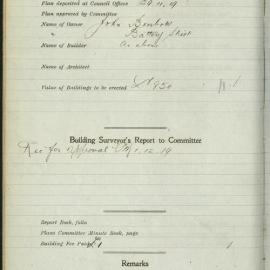 Plan deposited at Council Offices 29.11.19
Plan approved by Committee
Name of Owner John
" Battery Street
Name of Builder As above
Name of Architect
Value of Buildings to be erected £950
Building Surveyor's Report to Committee
Rec for approval 1.12.19
Report Book, folio
Plans Committee Minute Book, page
Building Fee Paid £1
Remarks